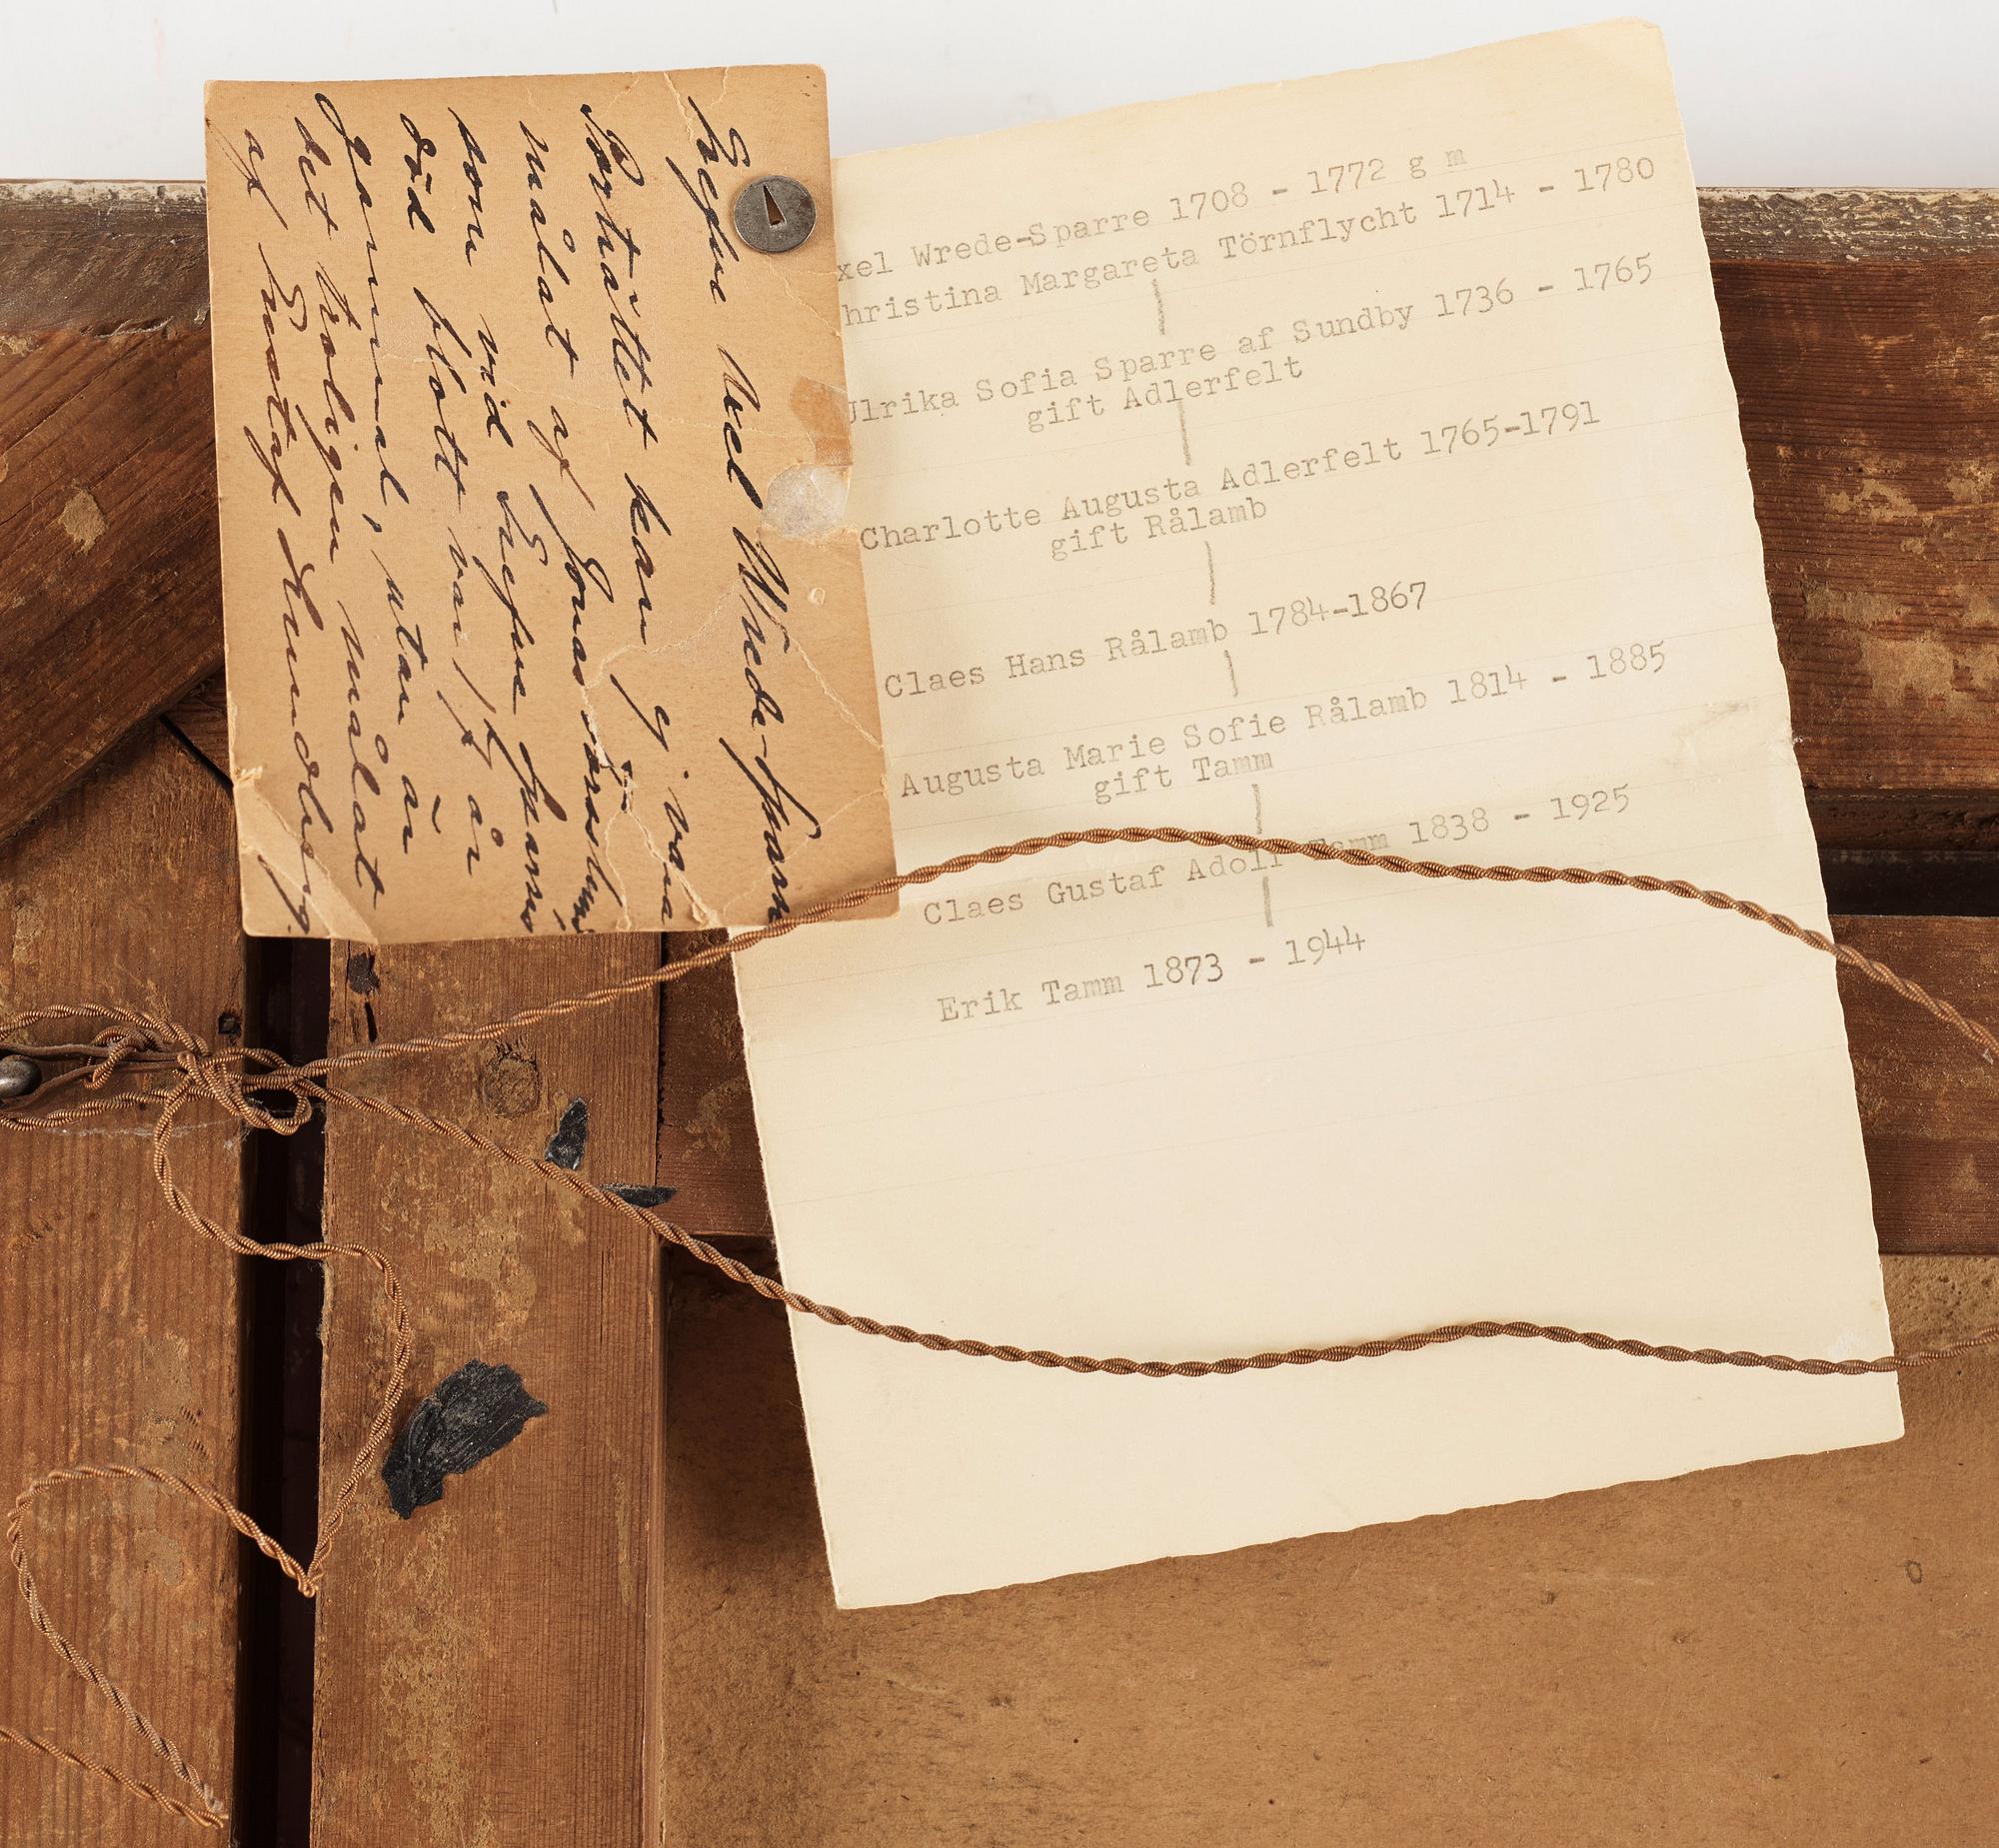 Grefve Axel Wrede-Sparre
Porträttet kan ej vara
målat af Jonas
som vid Grefve
död blott var 1/2 år
gammal, utan är
det troligen målat
af Gustaf Lundberg.
xel Wrede-Sparre 1708 - 1772 g m
hristina Margareta Törnflycht 1714 - 1780
Ulrika Sofia Sparre af Sundby 1736 - 1765
gift Adlerfelt
Charlotte Augusta Adlerfelt 1765-1791
gift Rålamb
Claes Hans Rålamb 1784-1867
Augusta Marie Sofie Rålamb 1814 - 1885
gift Tamm
Claes Gustaf Adolf Tamm 1838 - 1925
Erik Tamm 1873 - 1944